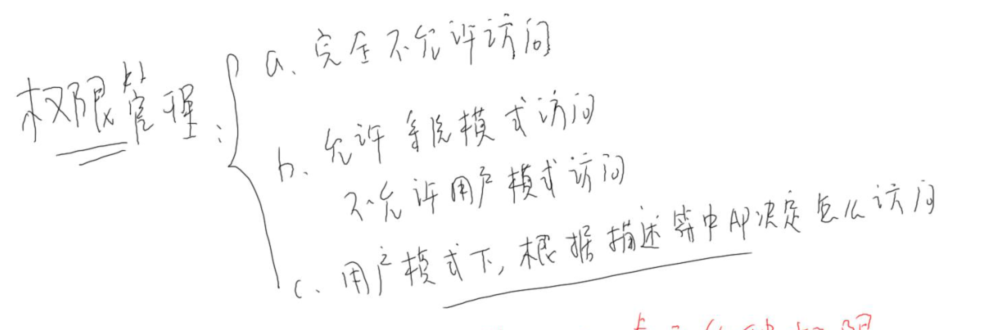 权限管理：
a、完全不允许访问
b、允许系统模式访问
不允许用户模式访问
c、用户模式下，根据描述符中AP决定怎么访问